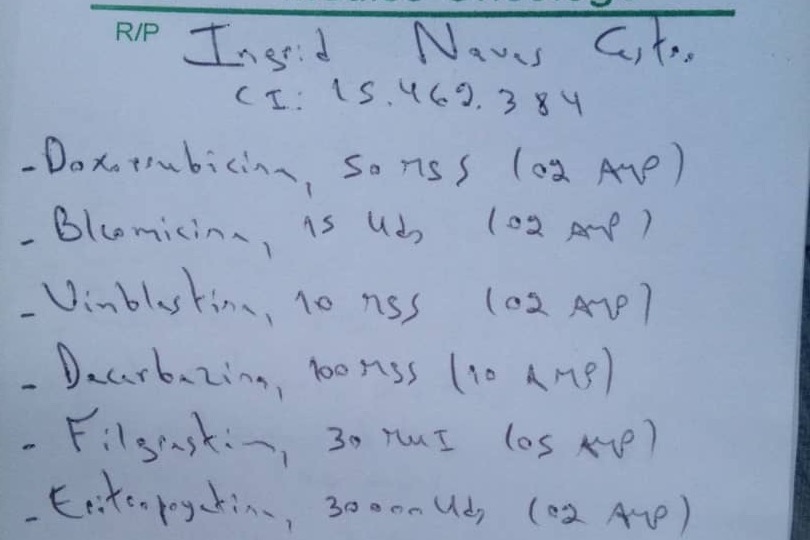 R/P Ingrid Navas Castro
CI: 15.462.384
- Doxorrubicina, 50 mgs (02 Amp)
- Bleomicina, 15 Uds (02 Amp)
- Vinblastina, 10 mgs (02 Amp)
- Dacarbazina, 100 mgs (10 AMP)
- Filgrastim, 30 MUI (05 Amp)
- Eritropoyetina, 30000 Uds (02 Amp)